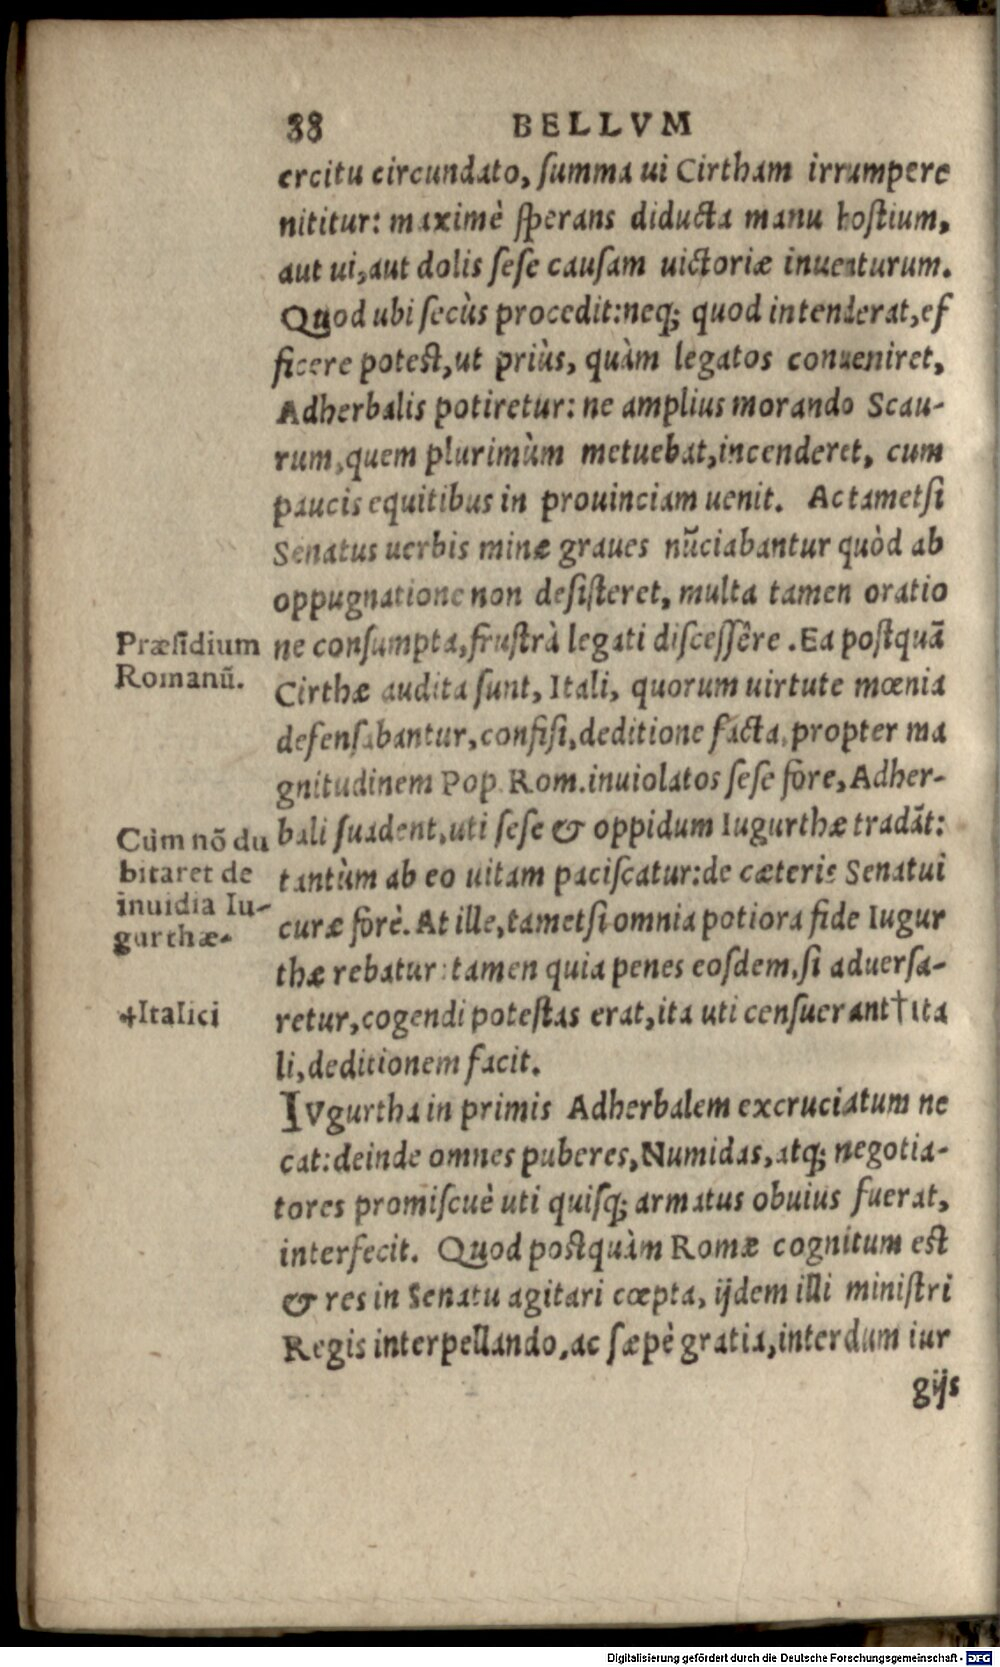 88 BELLVM
ercitu circundato, ſumma ui Cirtham irrumpere
nititur: maximè ſperans diducta manu hoſtium,
aut ui, aut dolis ſeſe cauſam uictoriæ inuenturum.
Quod ubi ſecùs procedit: neq; quod intenderat, ef
ficere poteſt, ut priùs, quàm legatos conueniret,
Adherbalis potiretur: ne amplius morando Scau-
rum, quem plurimùm metuebat, incenderet, cum
paucis equitibus in prouinciam uenit. Ac tametſi
Senatus uerbis minæ graues nũciabantur quòd ab
oppugnatione non deſiſteret, multa tamen oratio
ne conſumpta, fruſtrà legati diſceſſêre. Ea poſtquã
Præſidium
Romanũ.
Cirthæ audita ſunt, Itali, quorum uirtute mœnia
defenſabantur, confiſi, deditione facta, propter ma
gnitudinem Pop. Rom. inuiolatos ſeſe fore, Adher-
bali ſuadent, uti ſeſe & oppidum Iugurthæ tradãt:
Cùm nõ du
bitaret de
inuidia Iu-
gurthæ.
tantùm ab eo uitam paciſcatur: de cæteris Senatui
curæ forè. At ille, tametſi omnia potiora fide Iugur
thæ rebatur: tamen quia penes eoſdem, ſi aduerſa-
retur, cogendi poteſtas erat, ita uti cenſuerant † ita
+Italici
li, deditionem facit.
IVgurtha in primis Adherbalem excruciatum ne
cat: deinde omnes puberes, Numidas, atq; negotia-
tores promiſcuè uti quiſq; armatus obuius fuerat,
interfecit. Quod poſtquàm Romæ cognitum eſt
& res in Senatu agitari cœpta, ijdem illi miniſtri
Regis interpellando, ac ſæpè gratia, interdum iur
gijs
Digitalisierung gefördert durch die Deutsche Forschungsgemeinschaft - DFG